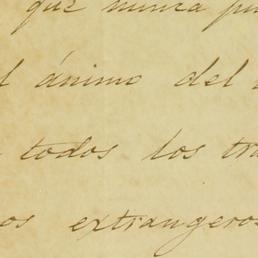 que nunca pu
l ánimo del
todos los tra
os extrangeros